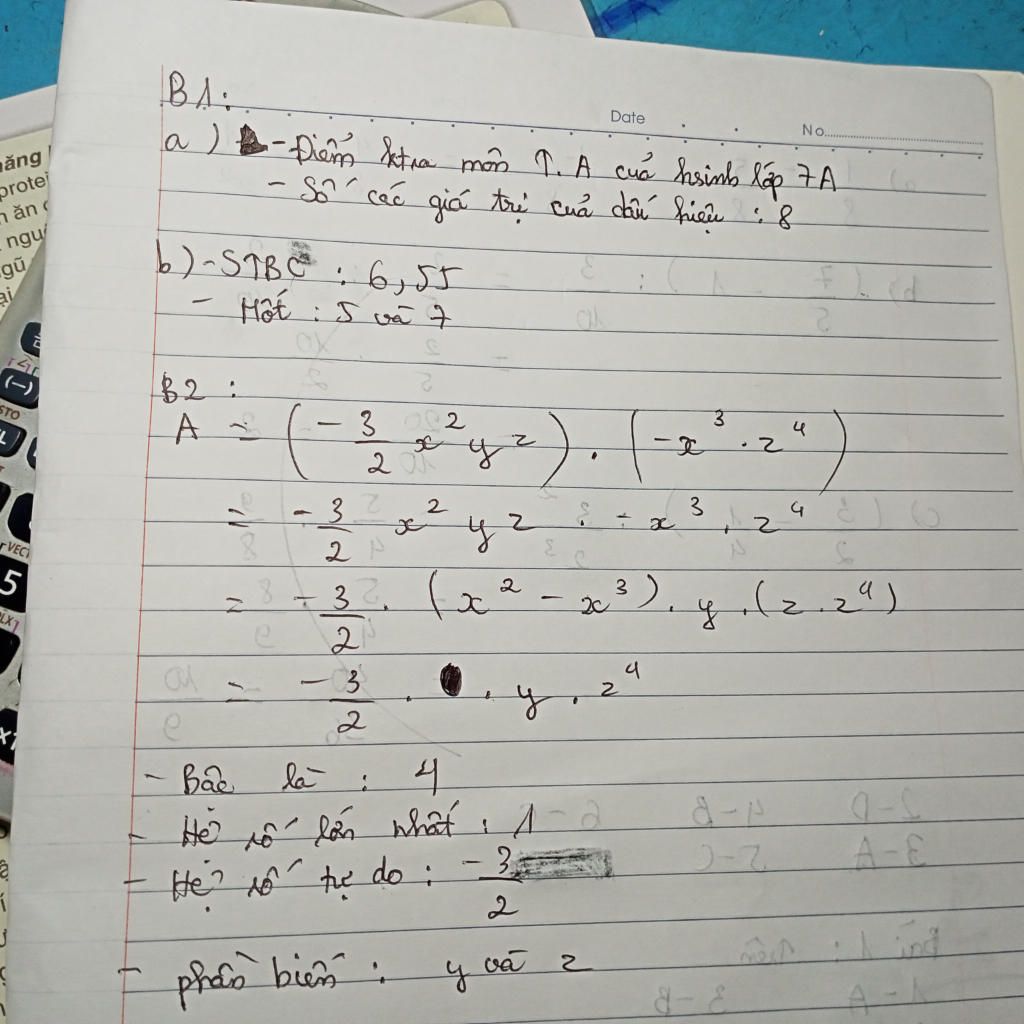 Date
No
B1:
a) - Điểm ktra môn T.A của hsinh lớp 7A
- Số các giá trị của dấu hiệu : 8
b) - STBC : 6,55
- Mốt : 5 và 7
B2 :
A = (-3/2 x² y z) . (-x³ . z⁴)
= -3/2 x² y z . - x³ . z⁴
= -3/2 . (x² - x³) . y . (z . z⁴)
= -3/2 . . y . z⁴
- Bậc là : 4
- Hệ số lớn nhất : 1
- Hệ số tự do : -3/2
- phần biến : y và z
ăng
protei
n ăn
ngu
gũ
ại
(-)
STO
VECT
5